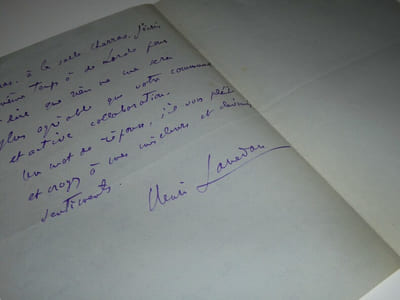 à la salle Charras. J'écris
même temps à de Lorde pour
dire que rien ne me sera
plus agréable que votre commune
et active collaboration.
Un mot de réponse, s'il vous plaît
et croyez à mes meilleurs et
sentiments.
Henri Lavedan